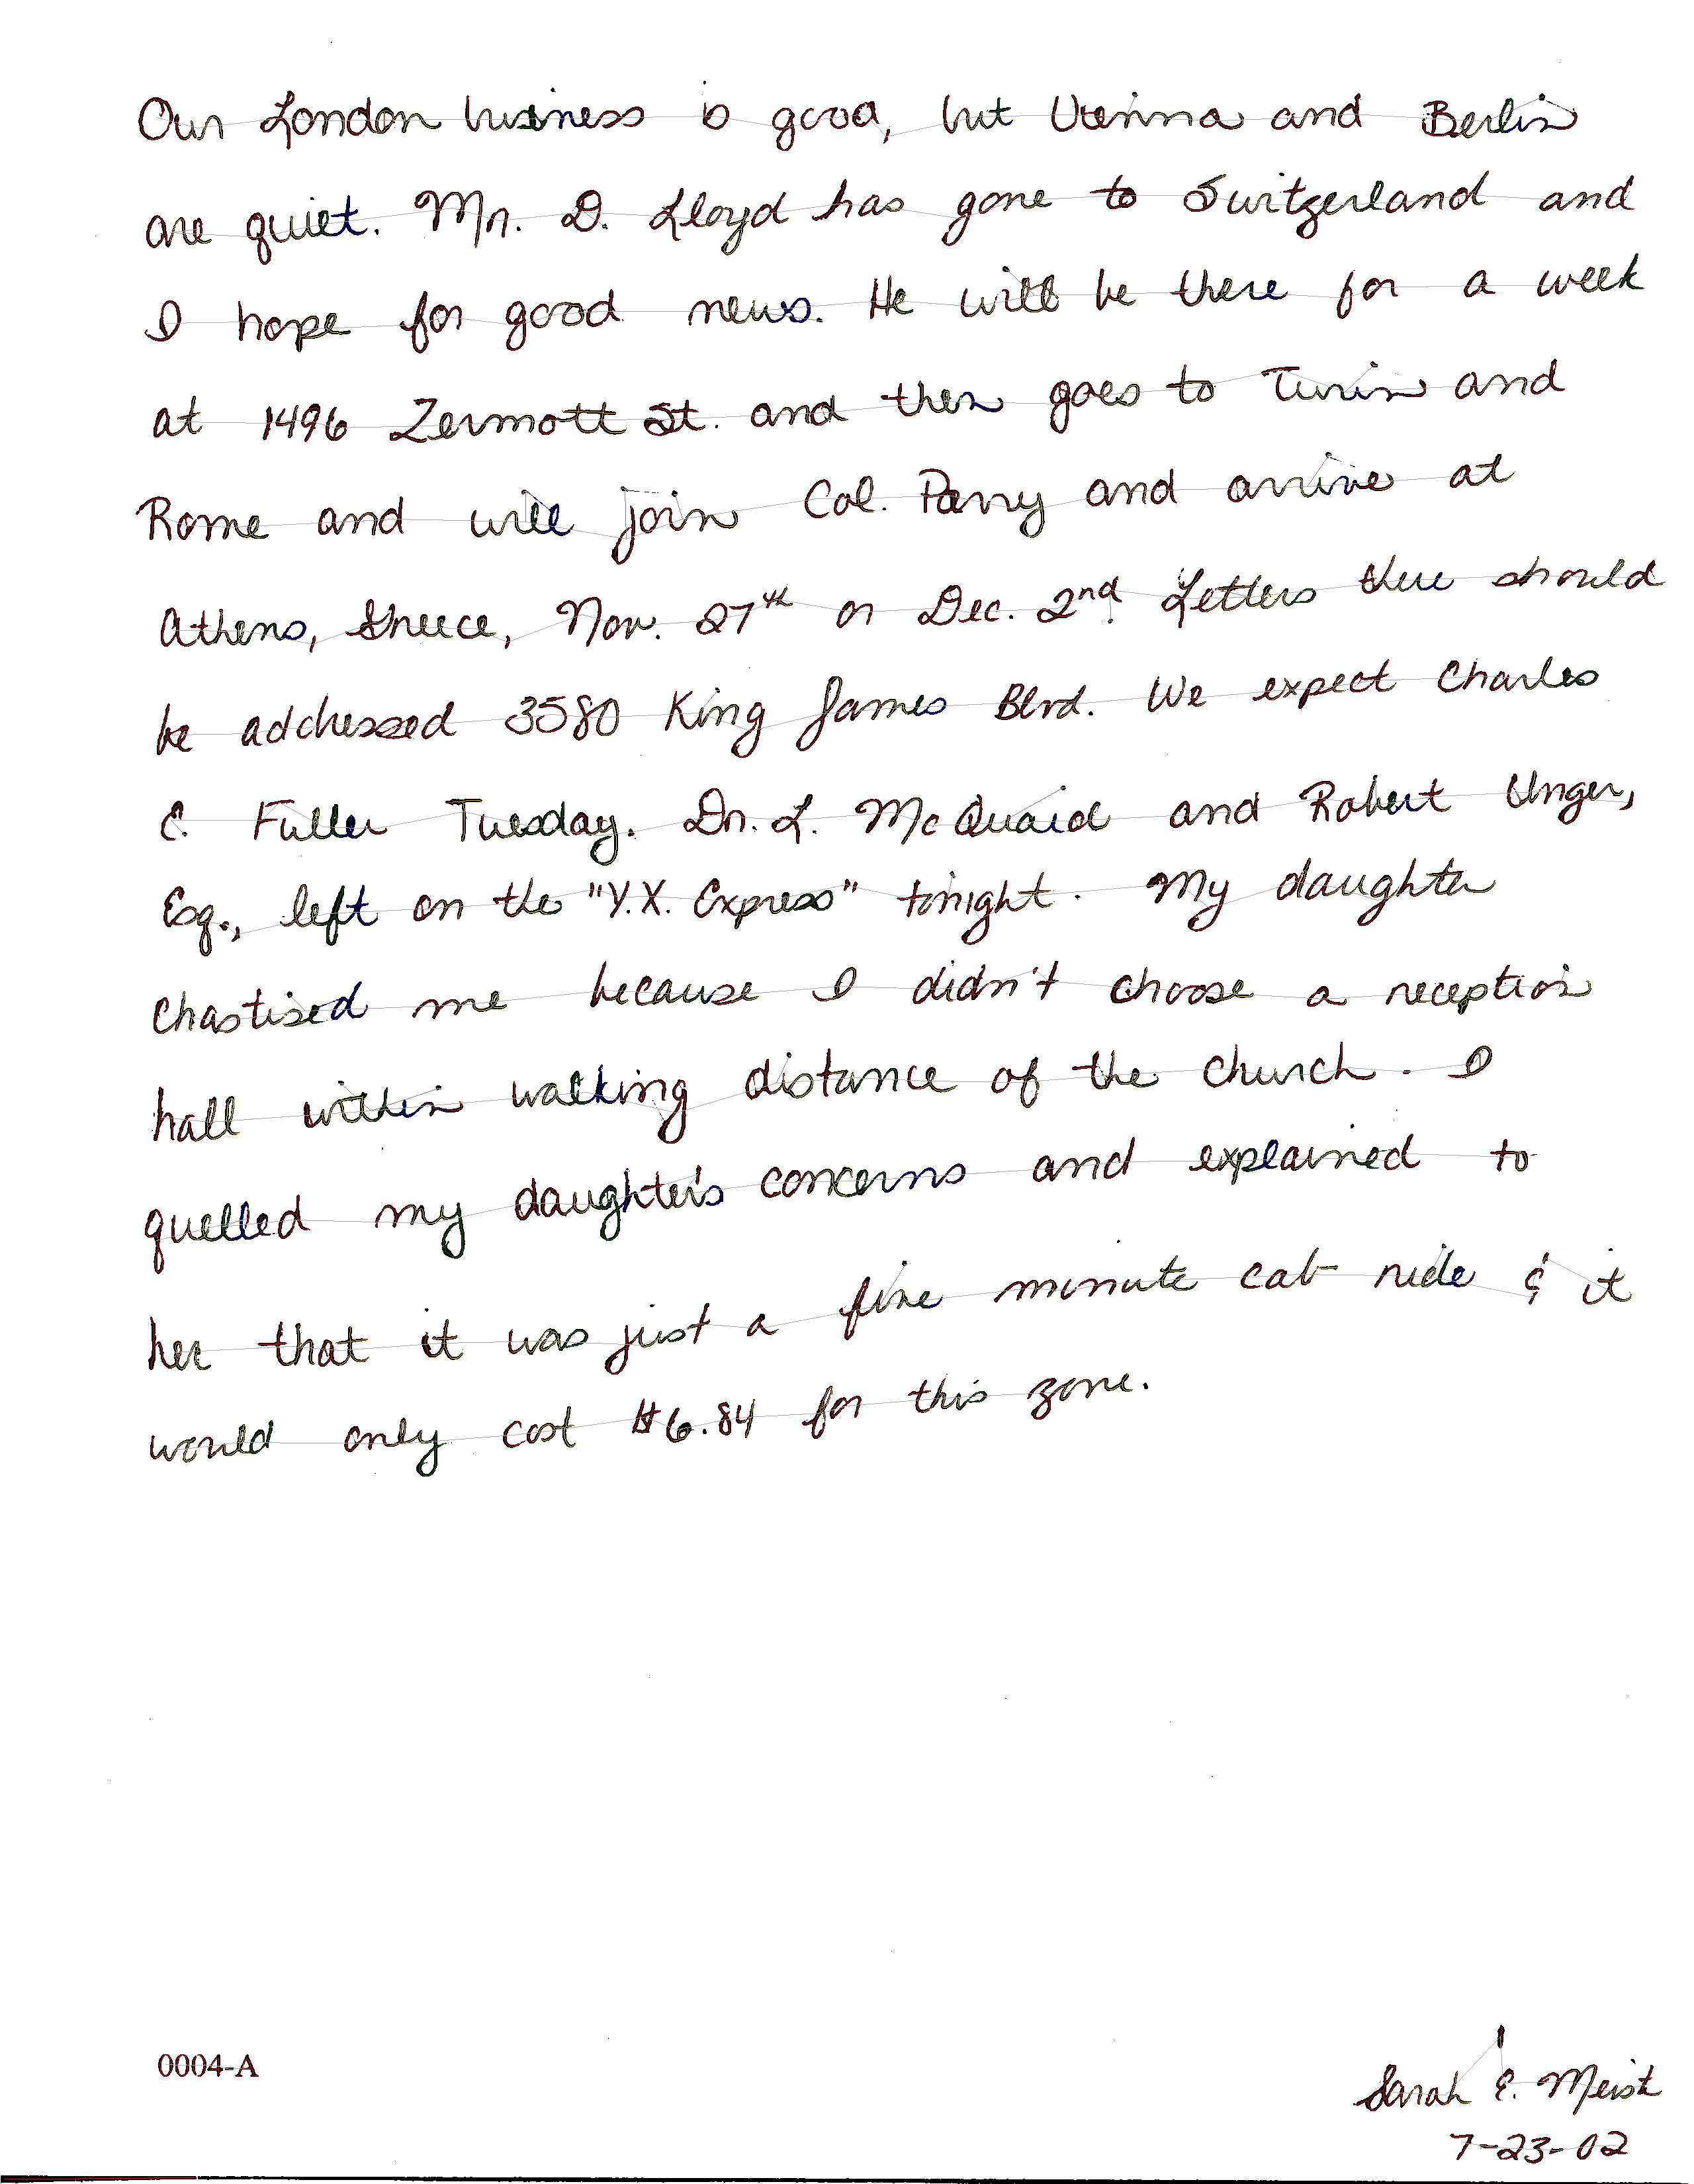 Our London business is good, but Vienna and Berlin
are quiet. Mr. D. Lloyd has gone to Switzerland and
I hope for good news. He will be there for a week
at 1496 Zermott St. and then goes to Turin and
Rome and will join Col. Parry and arrive at
Athens, Greece, Nov. 27th or Dec. 2nd. Letters there should
be addressed 3580 King James Blvd. We expect Charles
E. Fuller Tuesday. Dr. L. McQuaid and Robert Unger,
Esq., left on the "Y.X. Express" tonight. My daughter
chastised me because I didn't choose a reception
hall within walking distance of the church. I
quelled my daughter's concerns and explained to
her that it was just a five minute cab ride & it
would only cost $6.84 for this zone.
0004-A
Sarah E.
7-23-02